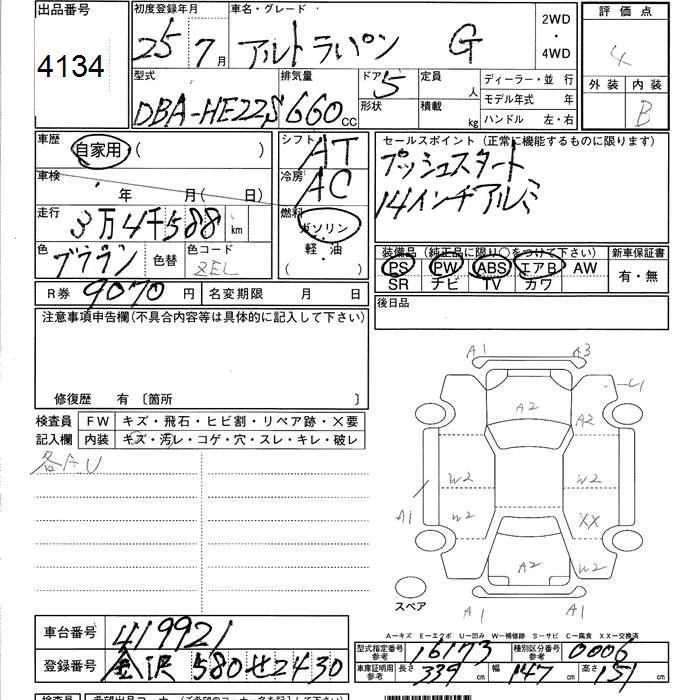 出品番号 初度登録年月 車名・グレード 2WD 評価点
4134 25 7月 アルトラパン G ・ 4
4WD
型式 排気量 ドア 5 定員 人 ディーラー・並 行 外装 内装
DBA-HE22S 660cc 形状 積載 kg モデル年式 年 B
ハンドル 左・右
車歴 自家用 ( ) シフト AT セールスポイント (正常に機能するものに限ります)
車検 年 月( 日) 冷房 AC プッシュスタート
走行 3万4千588 km 燃料 ガソリン 14インチアルミ
色 ブラウン 色替 色コード ZEL 軽・油
( )
装備品 (純正品に限り○をつけて下さい) 新車保証書
PS PW ABS エアB AW 有・無
SR ナビ TV カワ
R券 9070 円 名変期限 月 日 後日品
注意事項申告欄(不具合内容等は具体的に記入して下さい)
修復歴 有 〔箇所 〕
検査員 FW キズ・飛石・ヒビ割・リペア跡・×要
記入欄 内装 キズ・汚レ・コゲ・穴・スレ・キレ・破レ
各AU
A1 A3
U1
A2 A2
W2 W2
A1 W2 XX
A2 W2
スペア A1 A1
A-キズ E-エクボ U-凹み W-補修跡 S-サビ C-腐食 XX-交換済
車台番号 419921
型式指定番号 参考 16173 種別区分番号 参考 0006
登録番号 金沢 580 せ2430
車庫証明用 参考 長さ 339 cm 幅 147 cm 高さ 151 cm